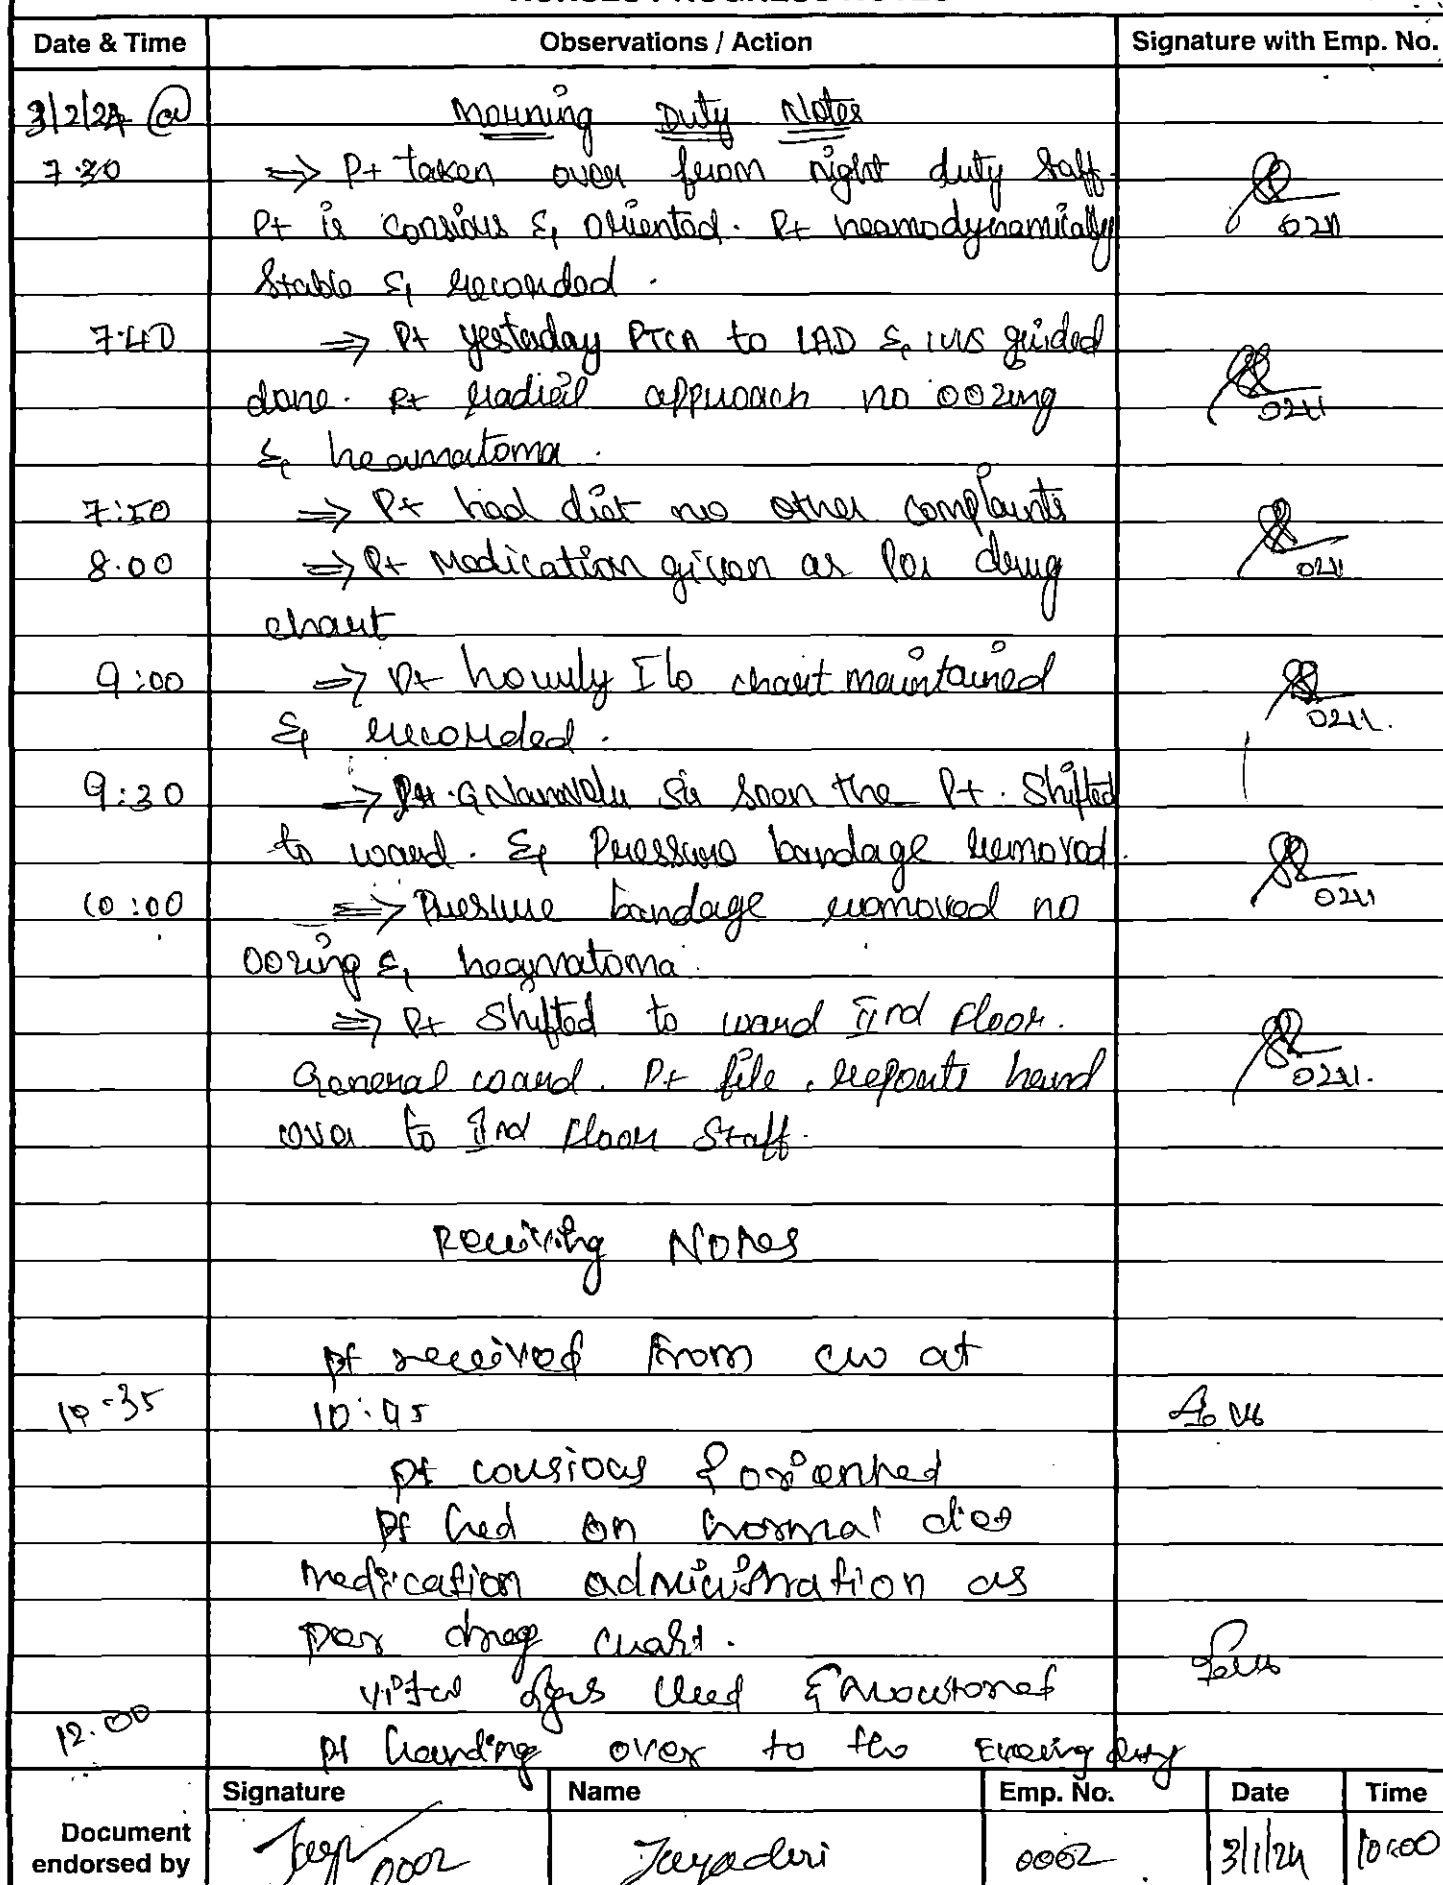 Date & Time Observations / Action Signature with Emp. No.
3/2/24 @ Mourning Duty Notes
7.30 => Pt taken over from night duty staff.
Pt is consious & oriented. Pt heamodynamically
0211
Stable & recorded.
7.40 => Pt yesterday PTCA to LAD & IVUS guided
done. Pt radial approach no oozing
0211
& heamatoma.
7:50 => Pt had diet no other complaints
8.00 => Pt Medication given as per drug
0211
chart
9:00 => Pt hourly I/o chart maintained
0211.
& recorded.
9:30 => Sir seen the Pt. Shifted
to ward. & Pressure bandage removed.
10:00 => Pressure bandage removed no
0211
oozing & heamatoma.
=> Pt Shifted to ward IInd floor.
General ward. Pt file, reports hand
0211.
over to IInd floor Staff.
Receiving Notes
pt received from at
10-35 10:45
pt consious & oriented
pt had on normal diet
medication administration as
per drug chart.
vital signs &
12.00 pt handing over to the Evening duty
Signature Name Emp. No. Date Time
Document
endorsed by 0002 Jayaderi 0002 3/1/24 10:00